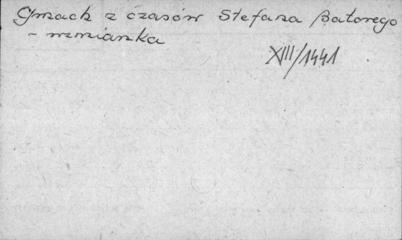 Gmach z czasów Stefana Batorego
- wzmianka
XIII/1441